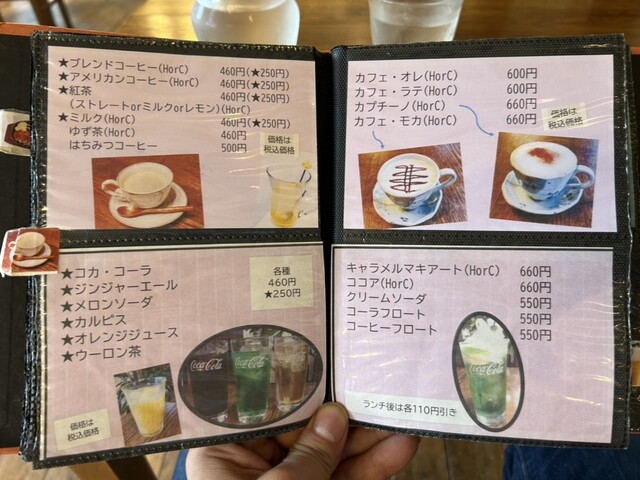 ★ブレンドコーヒー(HorC) 460円(★250円)
★アメリカンコーヒー(HorC) 460円(★250円)
★紅茶 460円(★250円)
(ストレートorミルクorレモン)(HorC)
★ミルク(HorC) 460円(★250円)
ゆず茶(HorC) 460円
はちみつコーヒー 500円
価格は
税込価格
カフェ・オレ(HorC) 600円
カフェ・ラテ(HorC) 600円
カプチーノ(HorC) 660円
カフェ・モカ(HorC) 660円
価格は
税込価格
★コカ・コーラ
★ジンジャーエール
★メロンソーダ
★カルピス
★オレンジジュース
★ウーロン茶
各種
460円
★250円
Coca-Cola
Coca-Cola
Coca-Cola
価格は
税込価格
キャラメルマキアート(HorC) 660円
ココア(HorC) 660円
クリームソーダ 550円
コーラフロート 550円
コーヒーフロート 550円
Coca-Cola
ランチ後は各110円引き